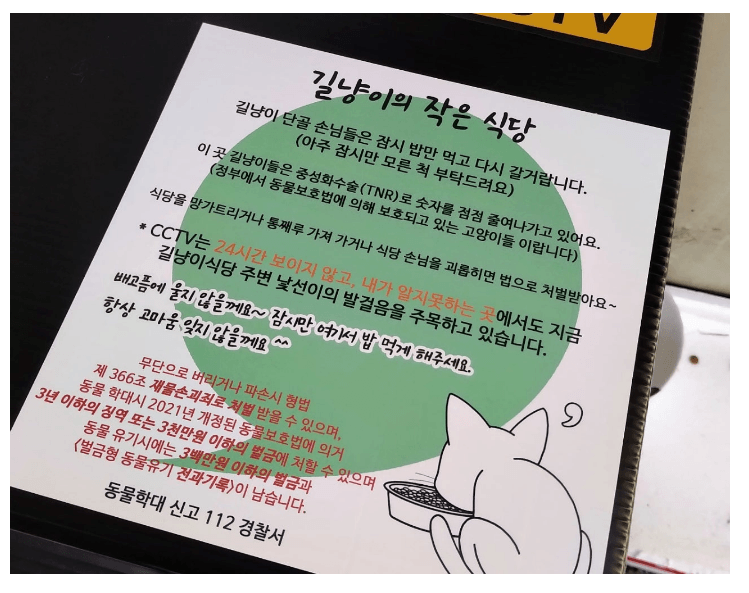 CCTV
길냥이의 작은 식당
길냥이 단골 손님들은 잠시 밥만 먹고 다시 갈거랍니다.
(아주 잠시만 모른 척 부탁드려요)
이 곳 길냥이들은 중성화수술(TNR)로 숫자를 점점 줄여나가고 있어요.
(정부에서 동물보호법에 의해 보호되고 있는 고양이들 이랍니다)
식당을 망가트리거나 통째루 가져 가거나 식당 손님을 괴롭히면 법으로 처벌받아요~
* CCTV는 24시간 보이지 않고, 내가 알지못하는 곳에서도 지금
길냥이식당 주변 낯선이의 발걸음을 주목하고 있습니다.
배고픔에 울지 않을께요~ 잠시만 여기서 밥 먹게 해주세요.
항상 고마움 잊지 않을께요 ^^
무단으로 버리거나 파손시 형법
제 366조 재물손괴죄로 처벌 받을 수 있으며,
동물 학대시 2021년 개정된 동물보호법에 의거
3년 이하의 징역 또는 3천만원 이하의 벌금에 처할 수 있으며
동물 유기시에는 3백만원 이하의 벌금과
〈벌금형 동물유기 전과기록〉이 남습니다.
동물학대 신고 112 경찰서